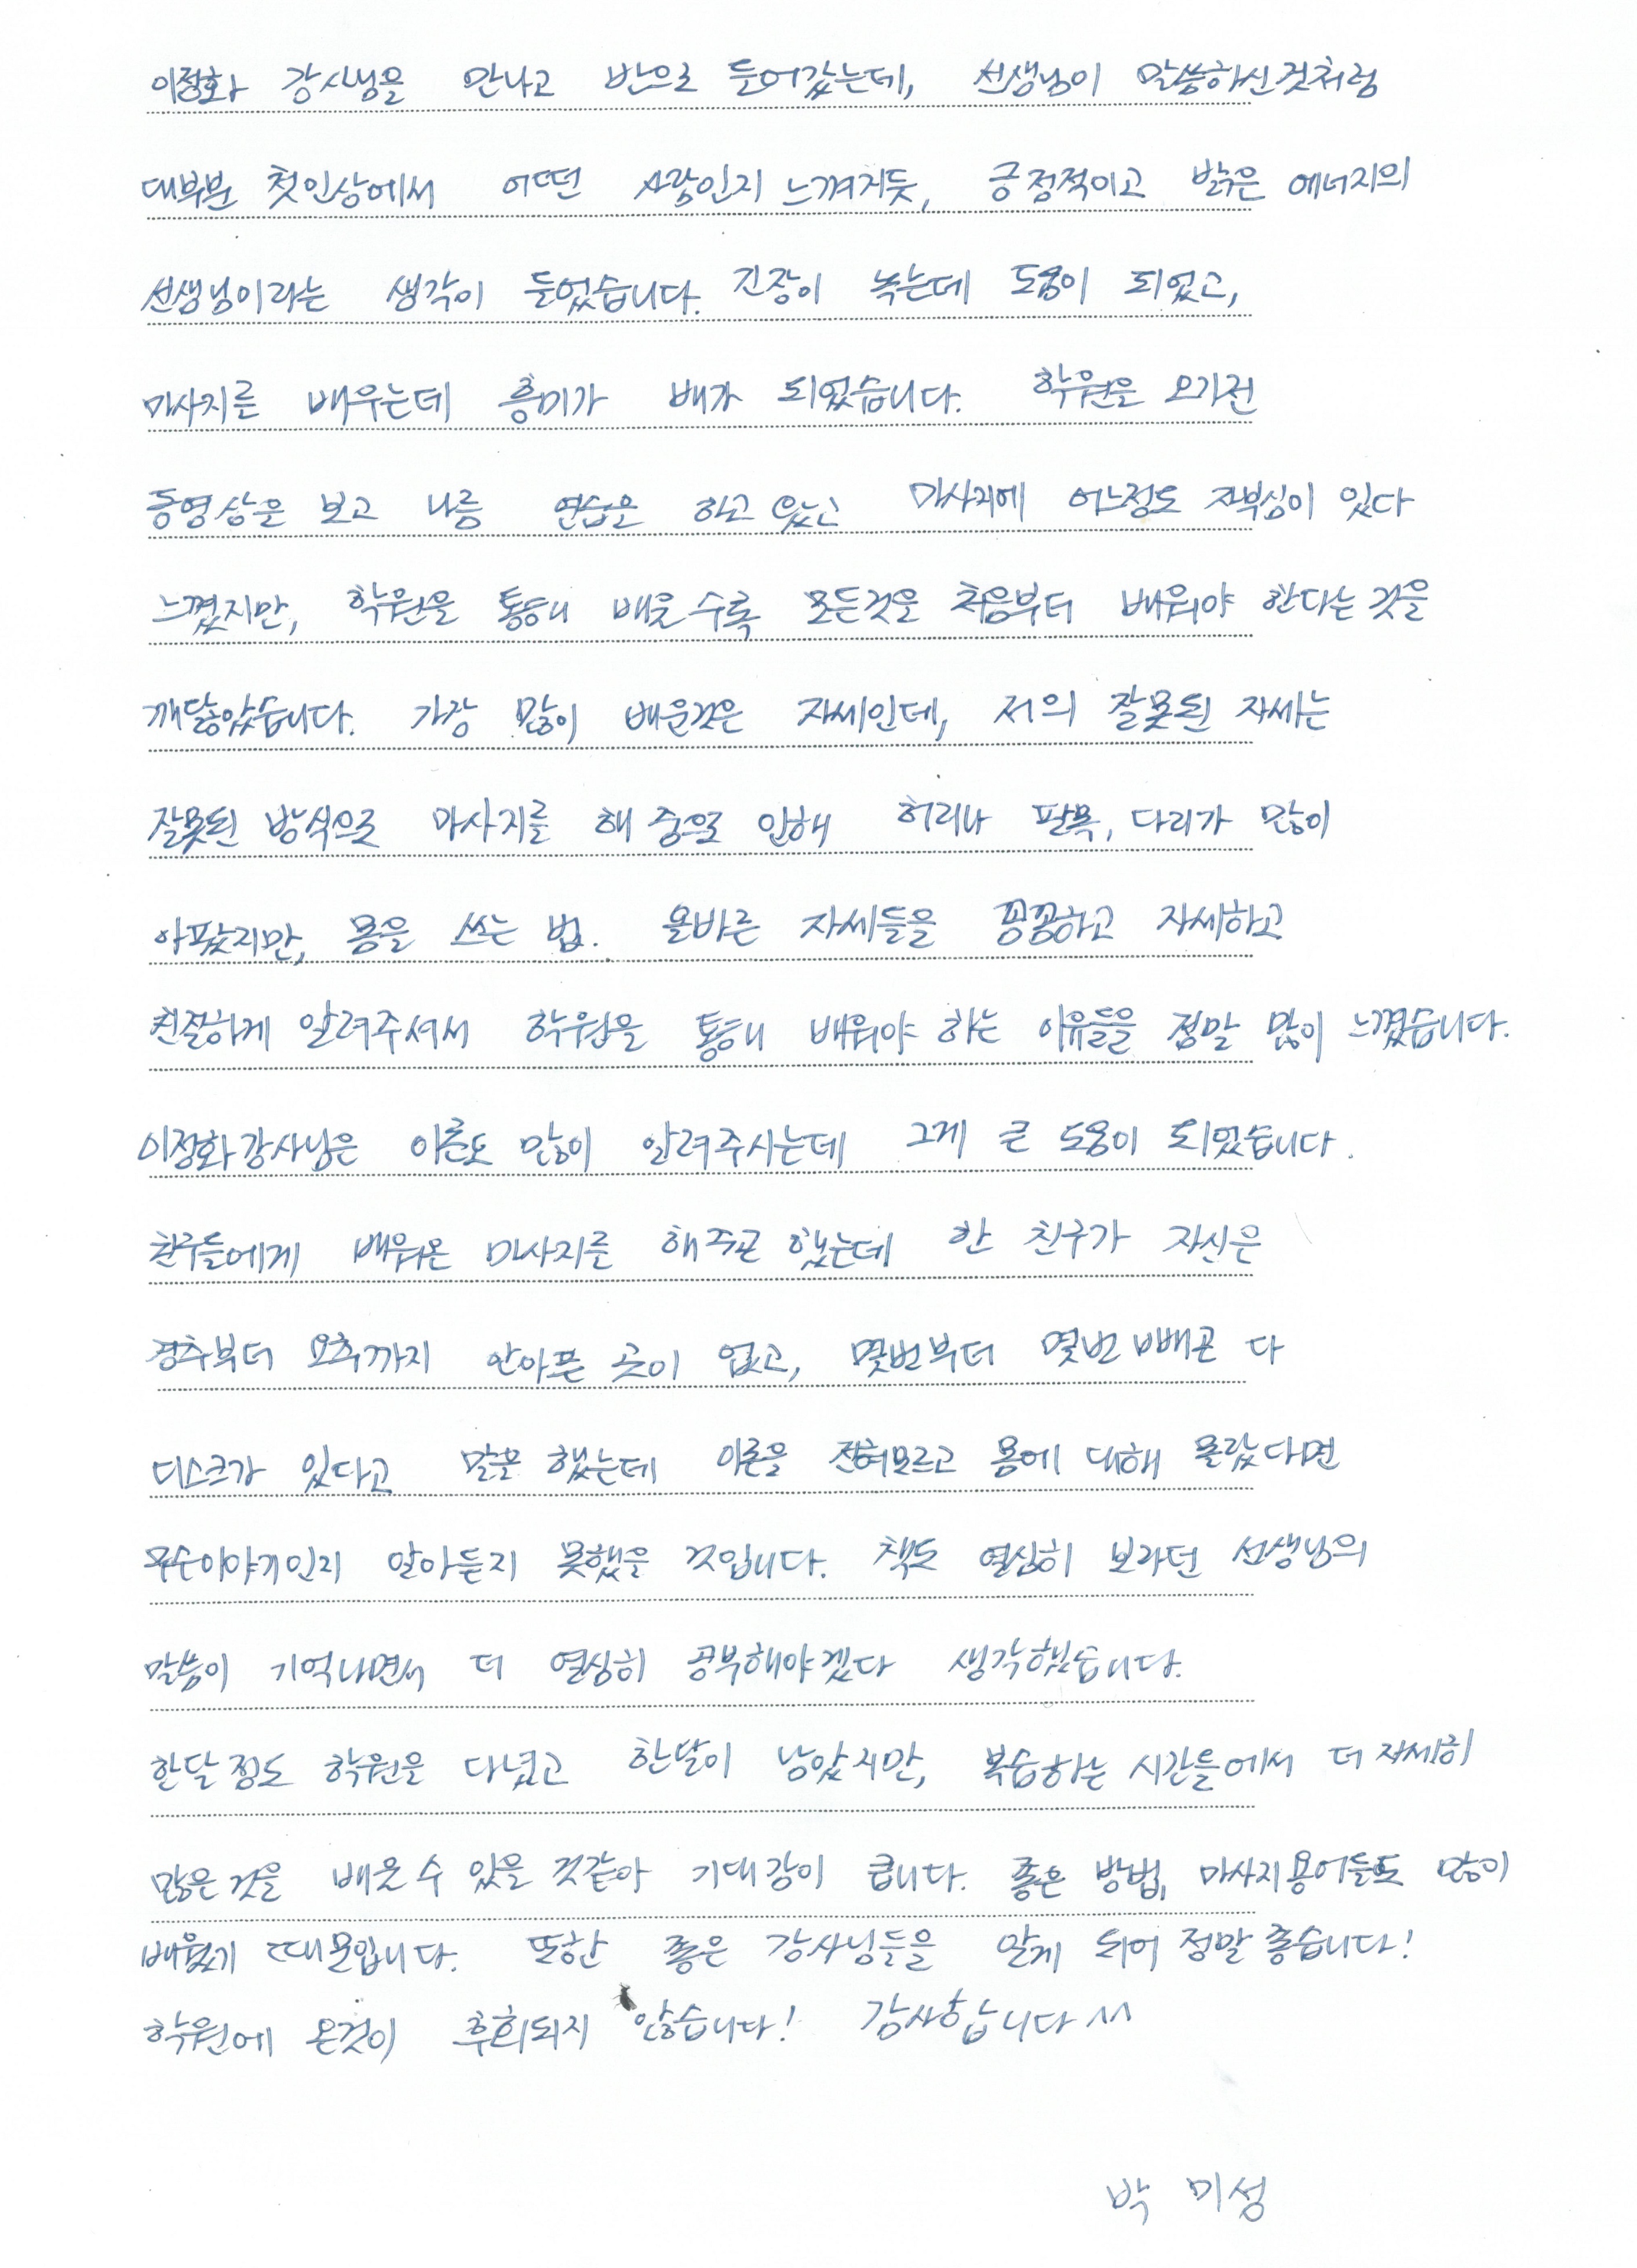 이정화 강사님을 만나고 반으로 들어갔는데, 선생님이 말씀하신것처럼
대부분 첫인상에서 어떤 사람인지 느껴지듯, 긍정적이고 밝은 에너지의
선생님이라는 생각이 들었습니다. 긴장이 녹는데 도움이 되었고,
마사지를 배우는데 흥미가 배가 되었습니다. 학원을 오기전
동영상을 보고 나름 연습을 하고 왔고 마사지에 어느정도 자부심이 있다
느꼈지만, 학원을 통해 배울수록 모든것을 처음부터 배워야 한다는 것을
깨닳았습니다. 가장 많이 배운것은 자세인데, 저의 잘못된 자세는
잘못된 방식으로 마사지를 해 줌으로 인해 허리나 팔목, 다리가 많이
아팠지만, 몸을 쓰는 법. 올바른 자세들을 꼼꼼하고 자세하고
친절하게 알려주셔서 학원을 통해 배워야 하는 이유들을 정말 많이 느꼈습니다.
이정화강사님은 이론도 많이 알려주시는데 그게 큰 도움이 되었습니다.
친구들에게 배워온 마사지를 해주곤 했는데 한 친구가 자신은
경추부터 요추까지 안아픈 곳이 없고, 몇번부터 몇번 빼곤 다
디스크가 있다고 말을 했는데 이론을 전혀모르고 몸에 대해 몰랐다면
무슨이야기인지 알아듣지 못했을 것입니다. 책도 열심히 보라던 선생님의
말씀이 기억나면서 더 열심히 공부해야겠다 생각했습니다.
한달 정도 학원을 다녔고 한달이 남았지만, 복습하는 시간들에서 더 자세히
많은 것을 배울 수 있을 것같아 기대감이 큽니다. 좋은 방법, 마사지용어들도 많이
배웠기 때문입니다. 또한 좋은 강사님들을 알게 되어 정말 좋습니다!
학원에 온것이 후회되지 않습니다! 감사합니다^^
박 미성